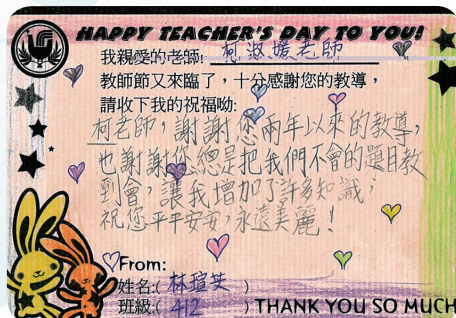 HAPPY TEACHER'S DAY TO YOU!
我親愛的老師: 柯淑媛老師
教師節又來臨了，十分感謝您的教導，
請收下我的祝福呦:
柯老師，謝謝您兩年以來的教導，
也謝謝您總是把我們不會的題目教
到會，讓我增加了許多知識，
祝您平平安安，永遠美麗！
From:
姓名:(林瑄苡)
班級:(412)
THANK YOU SO MUCH